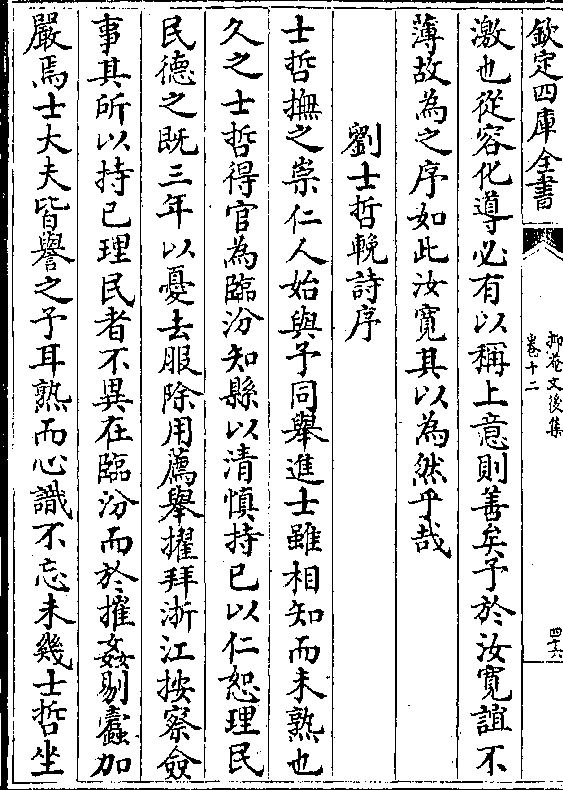 欽定四庫全書
抑菴文後集
卷十二
四十六
激也從容化導必有以稱上意則善矣予於汝寛誼不
薄故為之序如此汝寛其以為然乎哉
劉士哲輓詩序
士哲撫之崇仁人始與予同舉進士雖相知而未熟也
久之士哲得官為臨汾知縣以清慎持已以仁恕理民
民德之既三年以憂去服除用薦舉擢拜浙江按察僉
事其所以持已理民者不異在臨汾而於摧姦剔蠹加
嚴焉士大夫皆譽之予耳熟而心識不忘未幾士哲坐